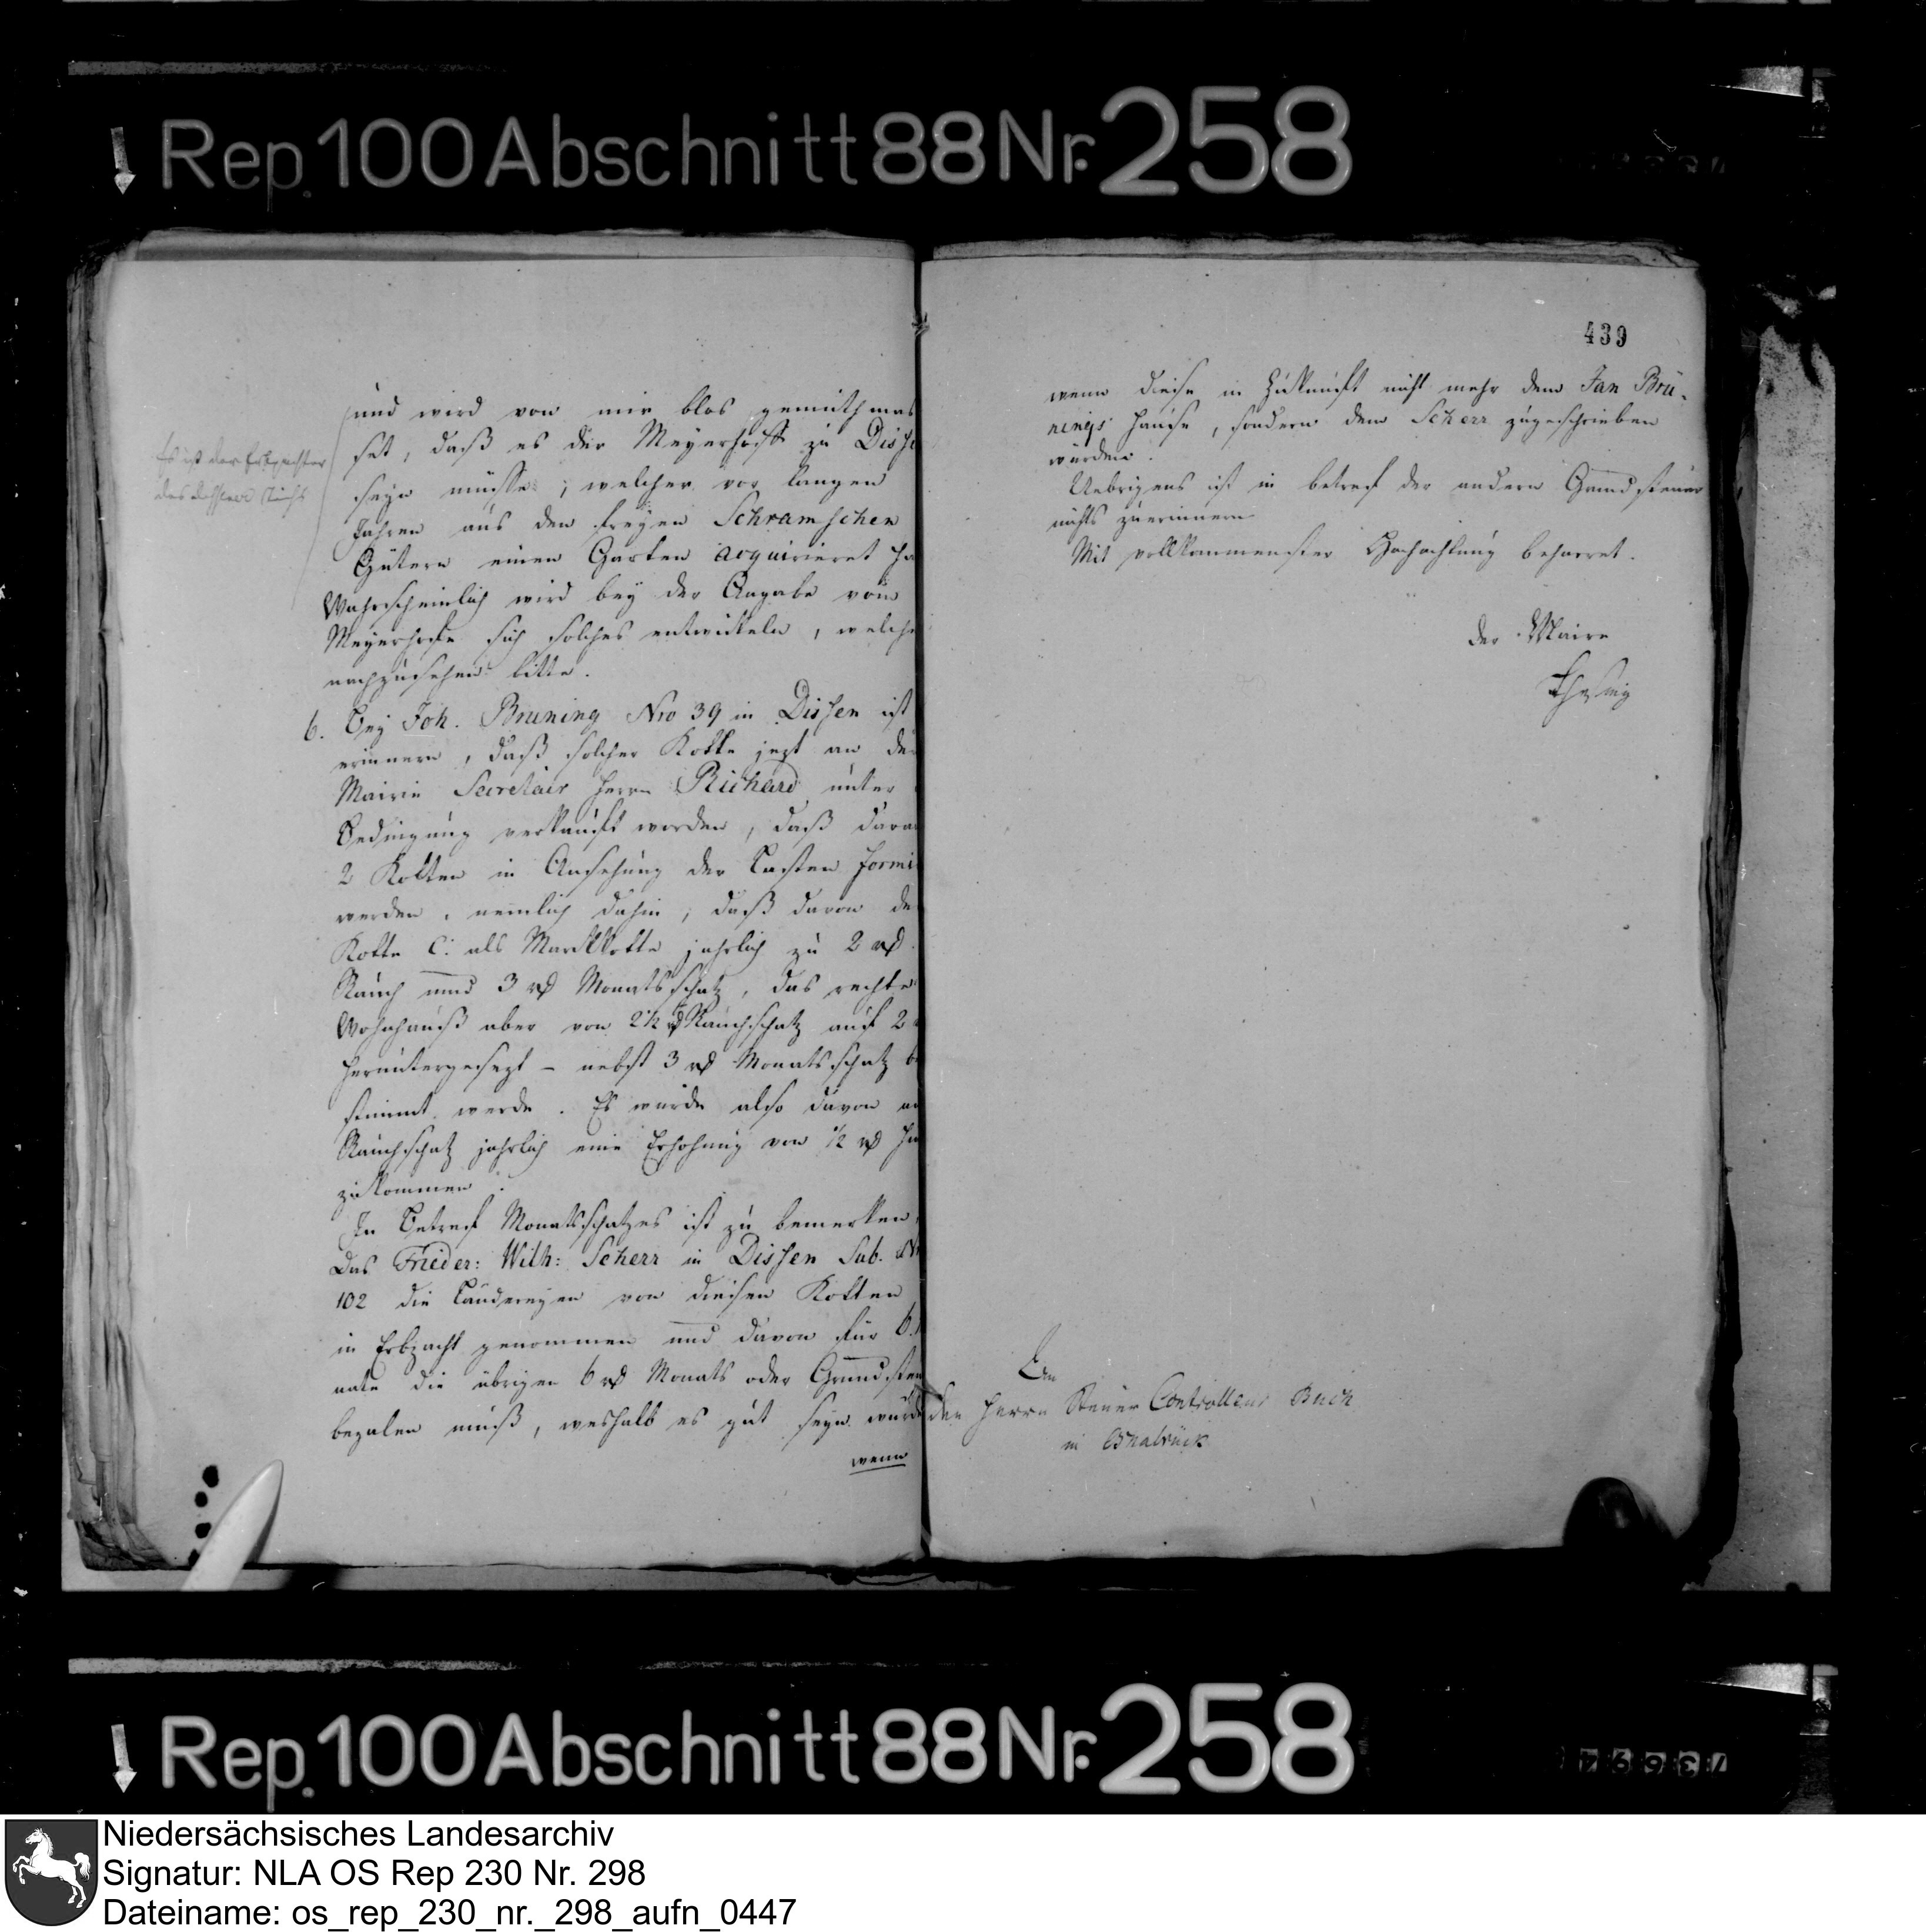 Rep. 100 Abschnitt 88 Nr. 258
und wird von mir blos gemuthmas
set, daß es der Meyerhoff zu Disse
seyn müsse, welcher vor langen
Jahren aus den freyen Schramschen
Gütern einen Garten acquirieret ha
Wahrscheinlich wird bey der Angabe vom
Meyerhofe sich solches entwickeln, welche
nachzusehen bitte.
Es ist der Erbpachter
des
6. Bey Joh. Bruning Nro 39 in Dissen ist
erinnern, daß solcher Kotte jezt an de
Mairie Secretair Herrn Richard unter
Bedingung verkauft worden, daß dara
2 Kotten in Ansehung der Lasten formi
werden, nemlich dahin, daß davon de
Kotte C: als Markkotte jahrlich zu 2 rthl
Rauch und 3 rthl Monatsschatz, das rechte
Wohnhauß aber von 2 1/2 rthl Rauchschatz auf 2
heruntergesezt – nebst 3 rthl Monatsschatz be
stimmt werde. Es würde also davon an
Rauchschatz jahrlich eine Erhohung von 1/2 rthl
zukommen.
In Betref Monatsschatzes ist zu bemerken,
Das Frieder: Wilh: Scherr in Dissen Sub. N
102 die Ländereyen von diesen Kotten
in Erbpacht genommen und davon für 6.
nate die übrigen 6 rthl Monats oder Grundsteu
bezalen muß, weshalb es gut seyn würde
wenn
439
wenn diese in Zukunft nicht mehr dem Jan Brü-
nings Hause, sondern dem Scherr zugeschrieben
würden.
Uebrigens ist in betref der andern Grundsteuer
nichts zuerinnern
Mit vollkommenster Hochachtung beharret.
der Maire
An
den Herrn Steuer Controlleur Buck
in Osnabrück
Rep. 100 Abschnitt 88 Nr. 258
Niedersächsisches Landesarchiv
Signatur: NLA OS Rep 230 Nr. 298
Dateiname: os_rep_230_nr._298_aufn_0447